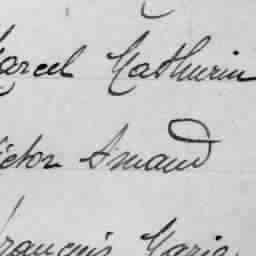 arcel Mathurin
ictor Amand
rançois Marie